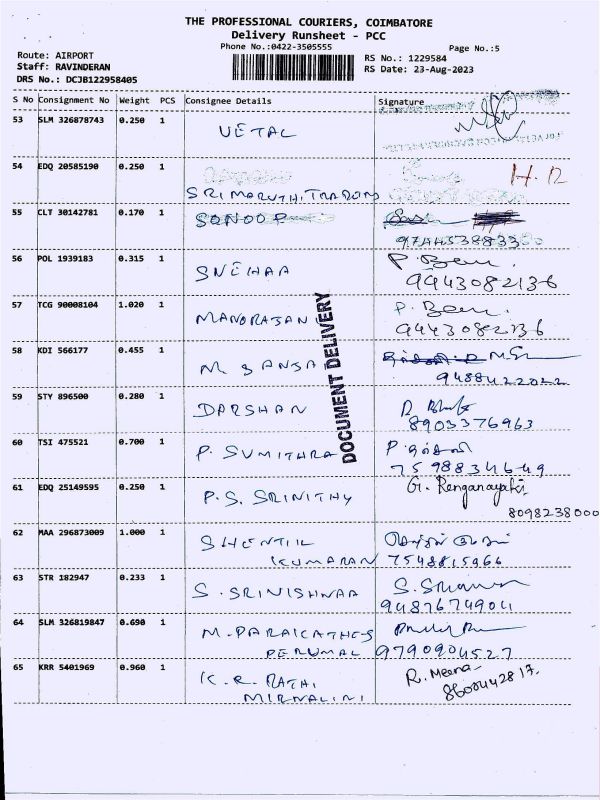 THE PROFESSIONAL COURIERS, COIMBATORE
Delivery Runsheet - PCC
Phone No.:0422-3505555
Page No.:5
Route: AIRPORT
Staff: RAVINDERAN
DRS No.: DCJB122958405
RS No.: 1229584
RS Date: 23-Aug-2023
S No Consignment No Weight PCS Consignee Details Signature
53 SLM 326878743 0.250 1 VETAL
54 EDQ 20585190 0.250 1 H.12
SRI MARUTHI TRADERS
55 CLT 30142781 0.170 1 SANOOP
56 POL 1939183 0.315 1 SNEHAA P.
9443082136
57 TCG 90008104 1.020 1 MANORAJAN P.
9443082136
58 KDI 566177 0.455 1 M SANJAI
9488422022
59 STY 896500 0.280 1 DARSHAN
8903376963
60 TSI 475521 0.700 1 P. SUMITHRA
7598834649
61 EDQ 25149595 0.250 1 P.S. SRINITHY G. Renganayaki
8098238000
62 MAA 296873009 1.000 1 SHENTIL
KUMARAN 7548815966
63 STR 182947 0.233 1 S. SRINISHNAA
9487674904
64 SLM 326819847 0.690 1 M. PARAICATHES
PERUMAL 9790904527
65 KRR 5401969 0.960 1 K.R. RATHI R. Meena
MIRNALINI 8608442817.
DOCUMENT DELIVERY